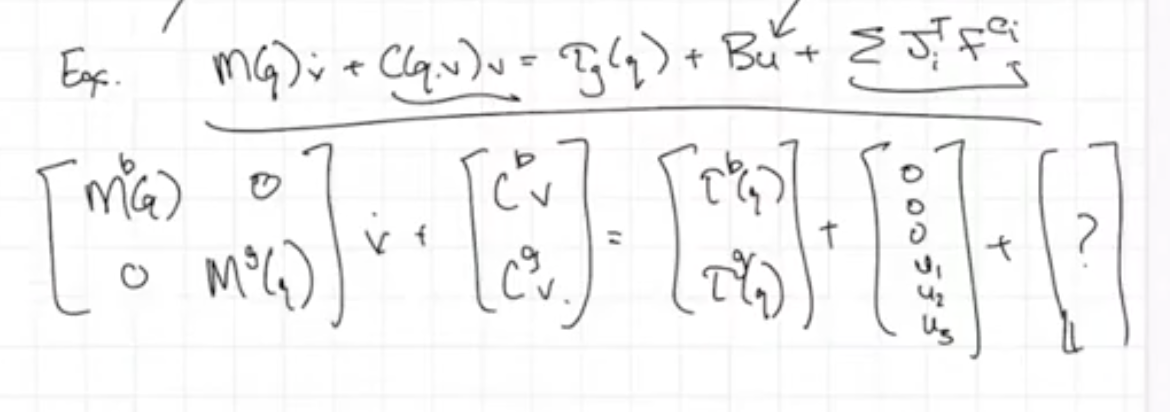 Eqs. M(q)v̇ + C(q,v)v = τg(q) + Bu + Σ JᵢᵀF^{cᵢ}
[M^b(q) 0; 0 M^g(q)] v̇ + [C^b v; C^g v.] = [τ^b(q); τ^g(q)] + [0; 0; 0; u₁; u₂; u₃] + [?]